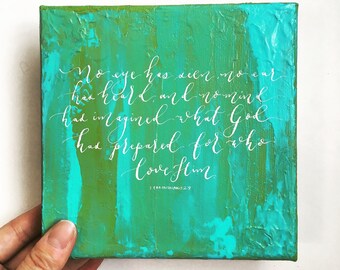 No eye has seen, no ear
has heard, and no mind
has imagined what God
has prepared for who
love Him